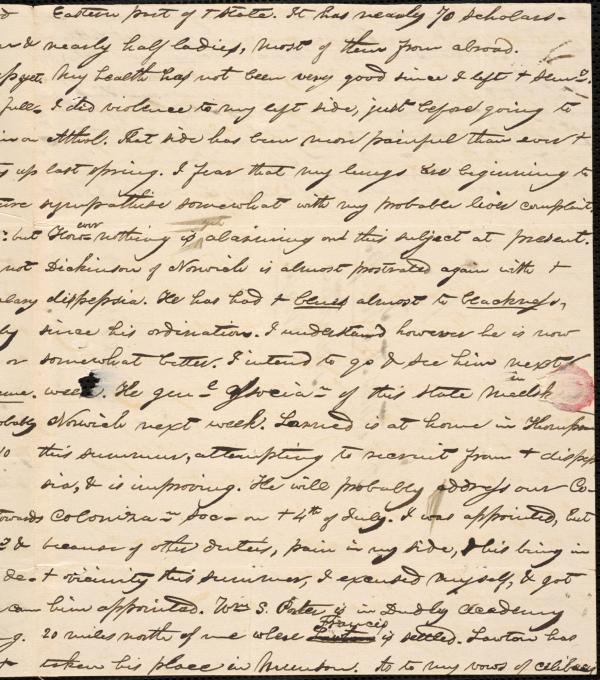 Eastern part of + State. It has nearly 70 scholars-
& nearly half ladies, most of them from abroad.
yet. My health has not been very good since I left + Semy.
full- I did violence to my left side, just before going to
on Athol. That side has been more painful than ever +
up last spring. I fear that my lungs are beginning to
sympathise somewhat with my probable liver complaint.
: but How-ever nothing is yet alarming on this subject at present.
not Dickinson of Norwich is almost prostrated again with +
dispepsia. He has had + blues almost to blackness,
by since his ordination. I understand however he is now
or somewhat better. I intend to go & see him next
week. He genl Associan of this State meets in
Norwich next week. Larned is at home in Thompson
10 this summer, attempting to recruit from + dispep
sia, & is improving. He will probably address our Co-
towards Coloniza-n Soc- on + 4th of July. I was appointed, but
& because of other duties, pain in my side, & his being in
de- + vicinity this summer, I excused myself, & got
can him appointed. Wm S. Porter is in Dudley Academy
g. 20 miles north of me where Francis is settled. Lawton has
+ taken his place in Munson. As to my vows of celibacy